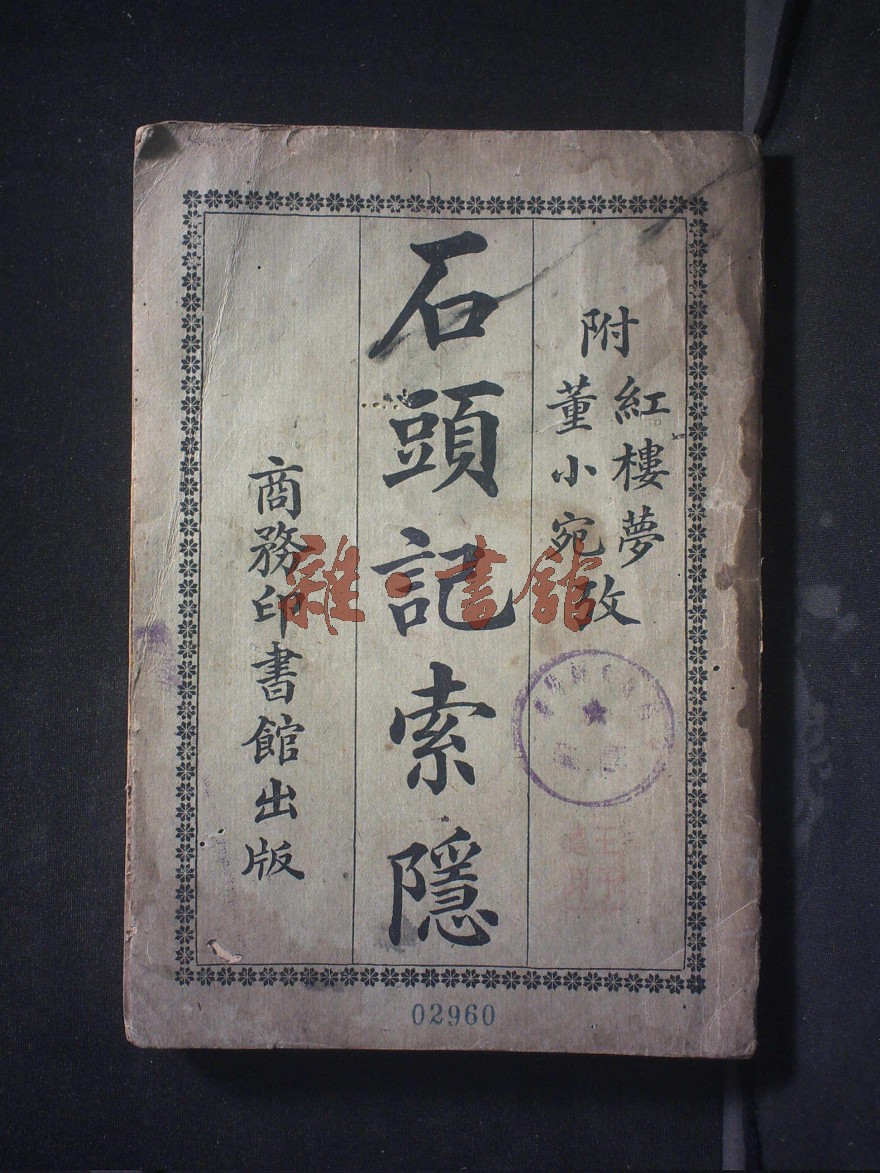 附紅樓夢攷
董小宛攷
石頭記索隱
商務印書館出版
雜·書館
02960